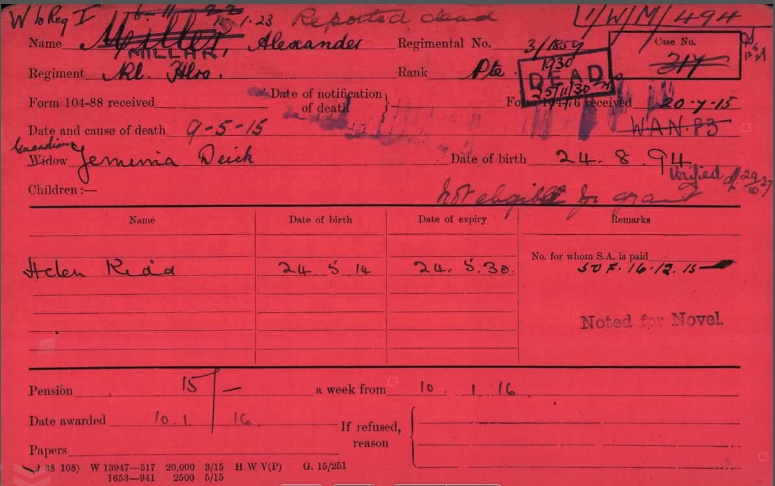 W to Reg I 6-11-22 1.23 Reported dead 1/W/M/494
Name Miller, Alexander Regimental No. 3/1859 Case No.
MILLAR, 1930 317
Regiment Rl. Hrs. Rank Pte DEAD
25/11/30
Form 104-88 received Date of notification of death Form 104-76 received 20-7-15
Date and cause of death 9-5-15 WAN.83
Guardian
Widow Jemima Deick Date of birth 24.8.94
Verified 29/10/27
Children:— Not eligible for grant
Name Date of birth Date of expiry Remarks
No. for whom S.A. is paid
Helen Kidd 24 5 14 24.5.30. 50F.16.12.15
Noted for Novel.
Pension 15/- a week from 10.1.16
Date awarded 10.1.16. If refused, reason
Papers
38 108) W 13947—517 20,000 3/15 H W V(P) G. 15/251
1653—941 2500 5/15